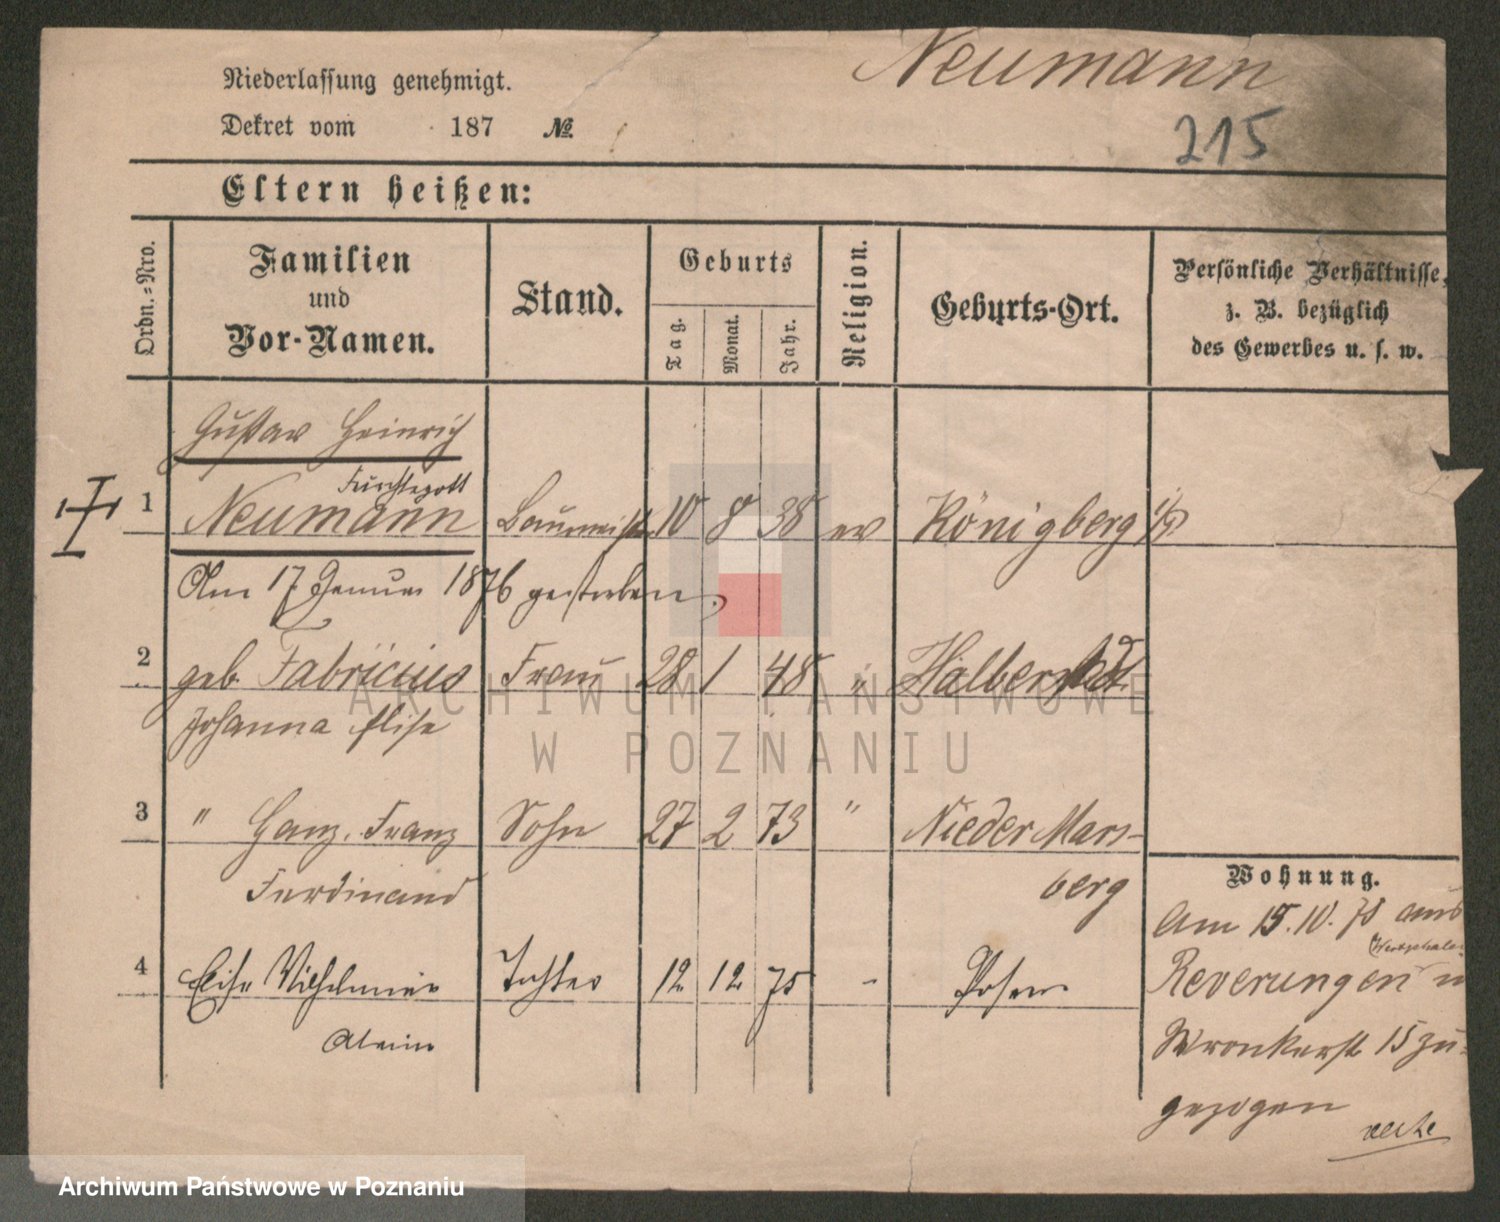 Neumann
215
Niederlassung genehmigt.
Dekret vom 187 №
Eltern heißen:
Ordn.-Nro.
Familien
und
Vor-Namen.
Stand.
Geburts
Tag.
Monat.
Jahr.
Religion.
Geburts-Ort.
Persönliche Verhältnisse,
z. B. bezüglich
des Gewerbes u. s. w.
Gustav Heinrich
Furchtegott
1 Neumann Baumeister 10 8 38 ev Königberg
Am 17 Januar 1876 gestorben
2 geb. Fabricius Frau 28 1 48 " Halberstadt
Johanna Elise
3 " Hanz. Franz Sohn 27 2 73 " Nieder Mars-
Ferdinand berg
4 Elise Wilhelmine Tochter 12 12 75 - Posen
Wohnung.
Am 15.10.75 aus
Reverungen
Wronkerst 15 zu-
gezogen
ARCHIWUM PAŃSTWOWE
W POZNANIU
Archiwum Państwowe w Poznaniu